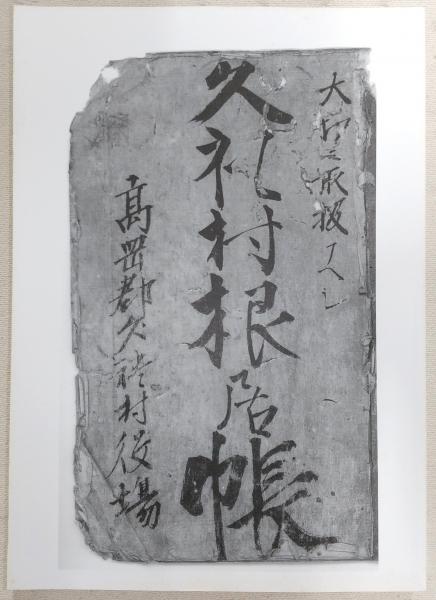 大切ニ取扱フヘシ
久礼村根居帳
高岡郡久礼村役場